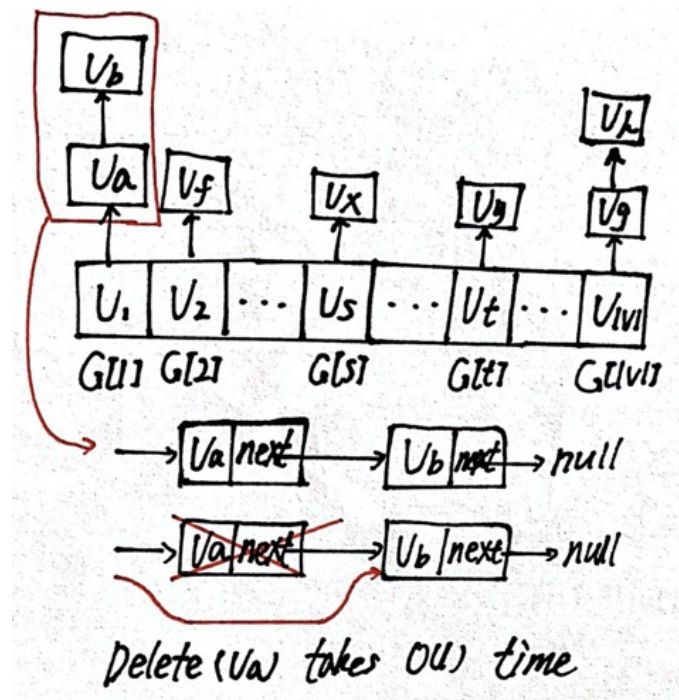 Ub
Ua Uf Ux Uy Ug Uh
U1 U2 ... Us ... Ut ... U|V|
G[1] G[2] G[s] G[t] G[|V|]
Ua next Ub next null
Ua next Ub next null
Delete (Ua) takes O(1) time